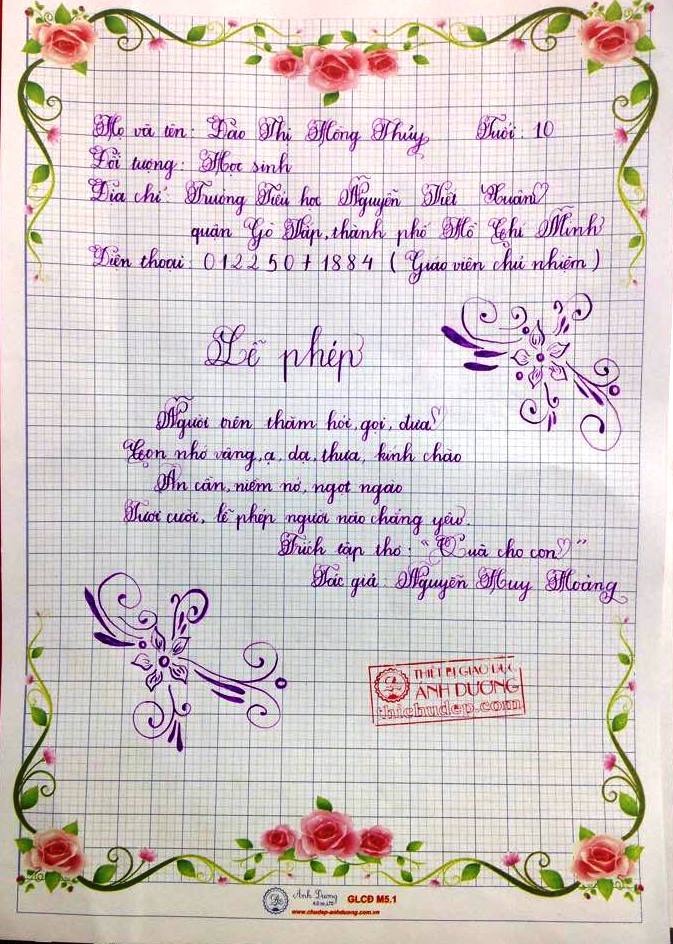 Họ và tên: Đào Thị Mộng Thủy Tuổi: 10
Đối tượng: Học sinh
Địa chỉ: Trường Tiểu học Nguyễn Viết Xuân
quận Gò Vấp, thành phố Hồ Chí Minh
Điện thoại: 01225071884 (Giáo viên chủ nhiệm)
Lễ phép
Người trên thăm hỏi, gọi, đưa
Con nhớ vâng, ạ, dạ, thưa, kính chào
Ân cần, niềm nở, ngọt ngào
Tươi cười, lễ phép người nào chẳng yêu.
Trích tập thơ: "Quà cho con"
Tác giả: Nguyễn Huy Hoàng
THIẾT BỊ GIÁO DỤC
ÁNH DƯƠNG
thichudep.com
Ánh Dương
GLCĐ M5.1
www.chudep-anhduong.com.vn